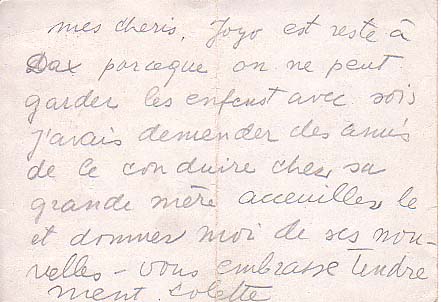 mes cheris. Jojo est resté à
Dax parceque on ne peut
garder les enfenst avec sois
j'avais demender des amis
de le conduire ches sa
grande mère acceuilles le
et donnes moi de ses nou-
velles - vous embrasse tendre
ment. colette